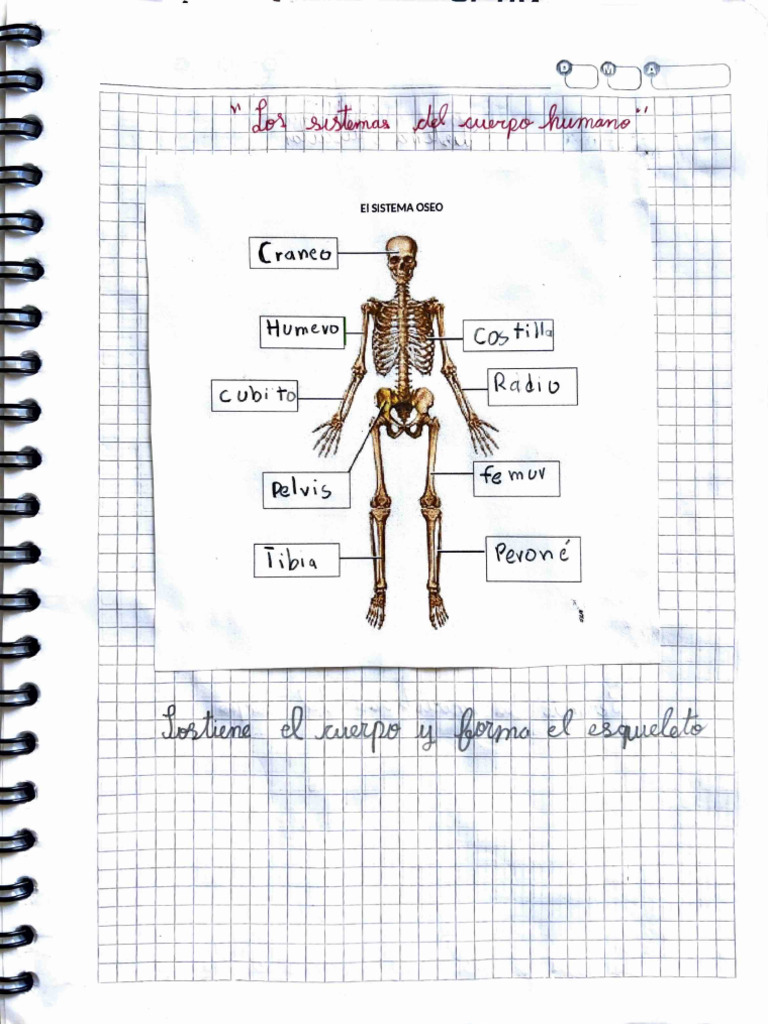 D M A
"Los sistemas del cuerpo humano"
El SISTEMA OSEO
Craneo
Humero
Costilla
Cubito
Radio
Pelvis
femur
Tibia
Peroné
Sostiene el cuerpo y forma el esqueleto